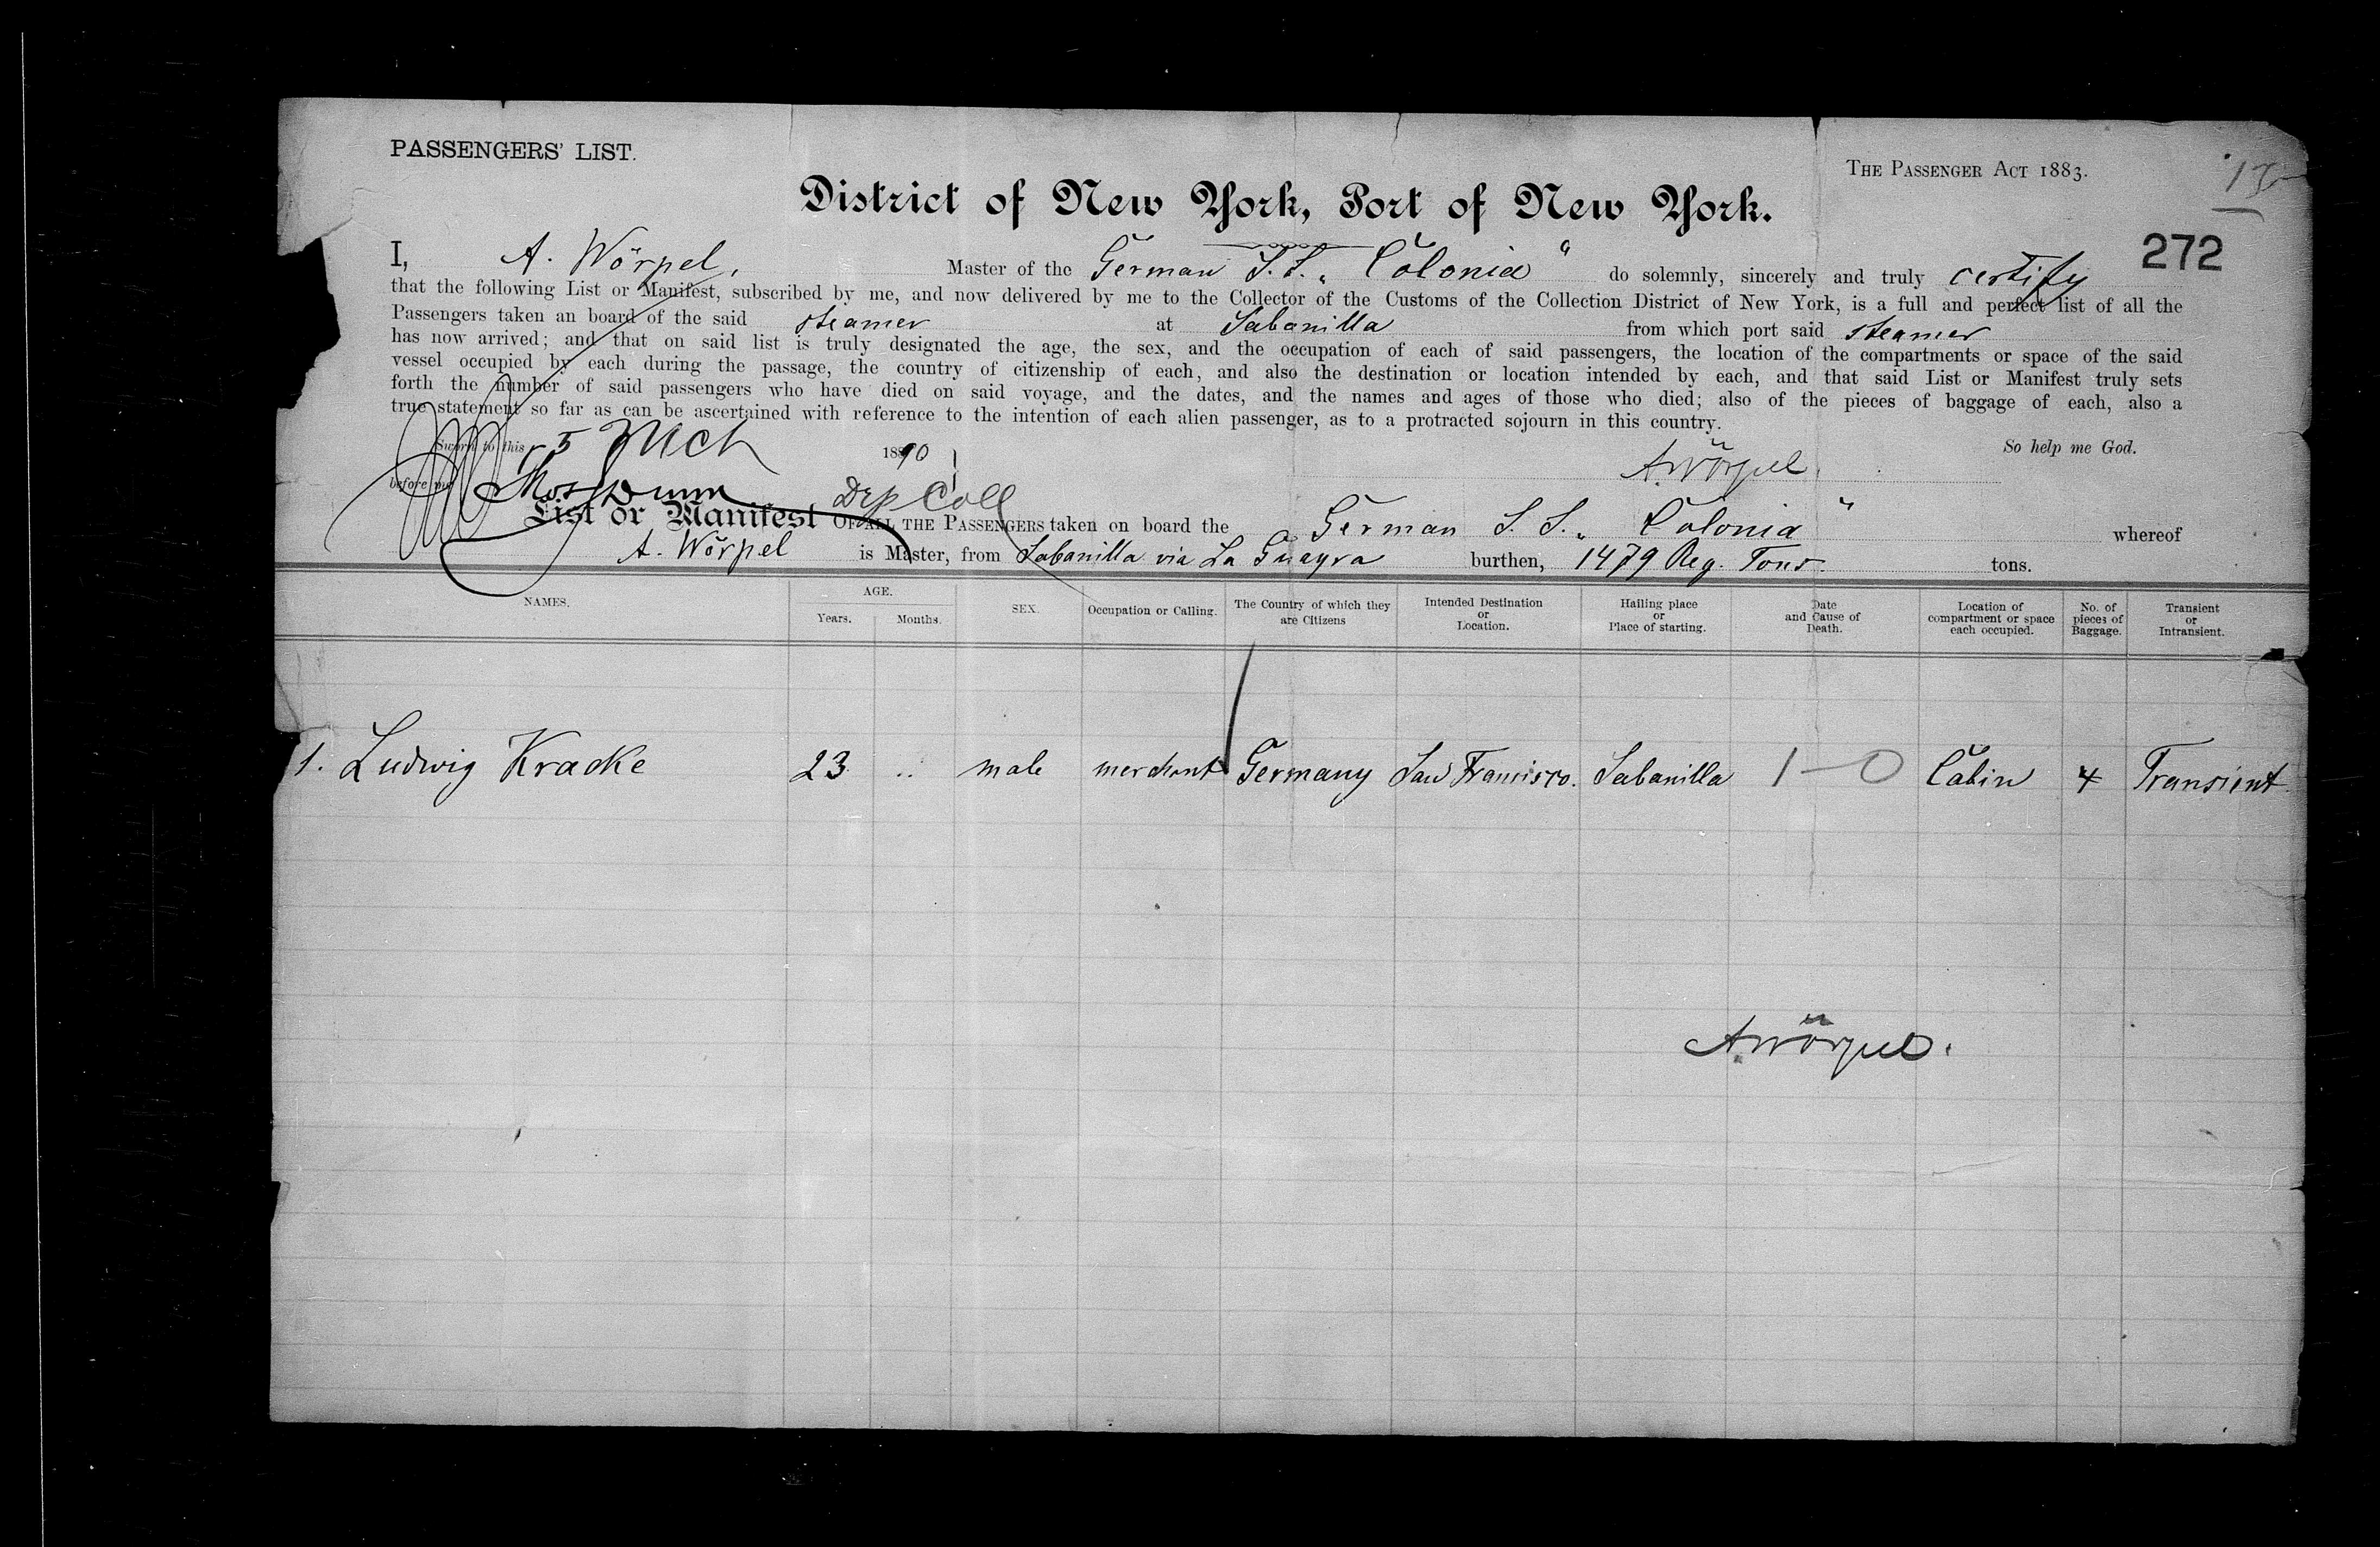 PASSENGERS' LIST.
THE PASSENGER ACT 1883.
District of New York, Port of New York.
272
I, A. Wörpel, Master of the German S.S. „Colonia“ do solemnly, sincerely and truly certify
that the following List or Manifest, subscribed by me, and now delivered by me to the Collector of the Customs of the Collection District of New York, is a full and perfect list of all the
Passengers taken an board of the said steamer at Sabanilla from which port said steamer
has now arrived; and that on said list is truly designated the age, the sex, and the occupation of each of said passengers, the location of the compartments or space of the said
vessel occupied by each during the passage, the country of citizenship of each, and also the destination or location intended by each, and that said List or Manifest truly sets
forth the number of said passengers who have died on said voyage, and the dates, and the names and ages of those who died; also of the pieces of baggage of each, also a
true statement so far as can be ascertained with reference to the intention of each alien passenger, as to a protracted sojourn in this country.
Sworn to this 5 Mch 1890 A. Wörpel. So help me God.
before me Dep Coll
List or Manifest OF ALL THE PASSENGERS taken on board the German S.S. „Colonia“ whereof
A. Wörpel is Master, from Sabanilla via La Guayra burthen, 1479 Reg. Tons. tons.
NAMES. AGE. Years. Months. SEX. Occupation or Calling. The Country of which they are Citizens Intended Destination or Location. Hailing place or Place of starting. Date and Cause of Death. Location of compartment or space each occupied. No. of pieces of Baggage. Transient or Intransient.
1. Ludwig Kracke 23 .. male merchant Germany San Francisco. Sabanilla 1–0 Cabin 4 Transient
A. Wörpel.